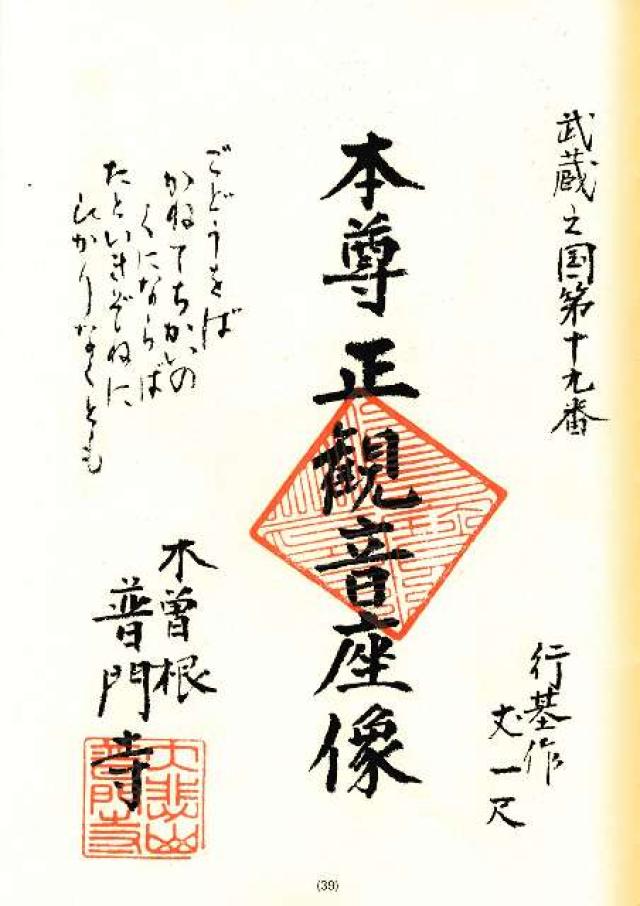 武蔵之国第十九番
行基作
丈一尺
本尊正觀音座像
ごどうをば
かねてちかいの
くにならば
たといきぞねに
ひかりなくとも
木曽根
普門寺
大悲山
普門寺
(39)